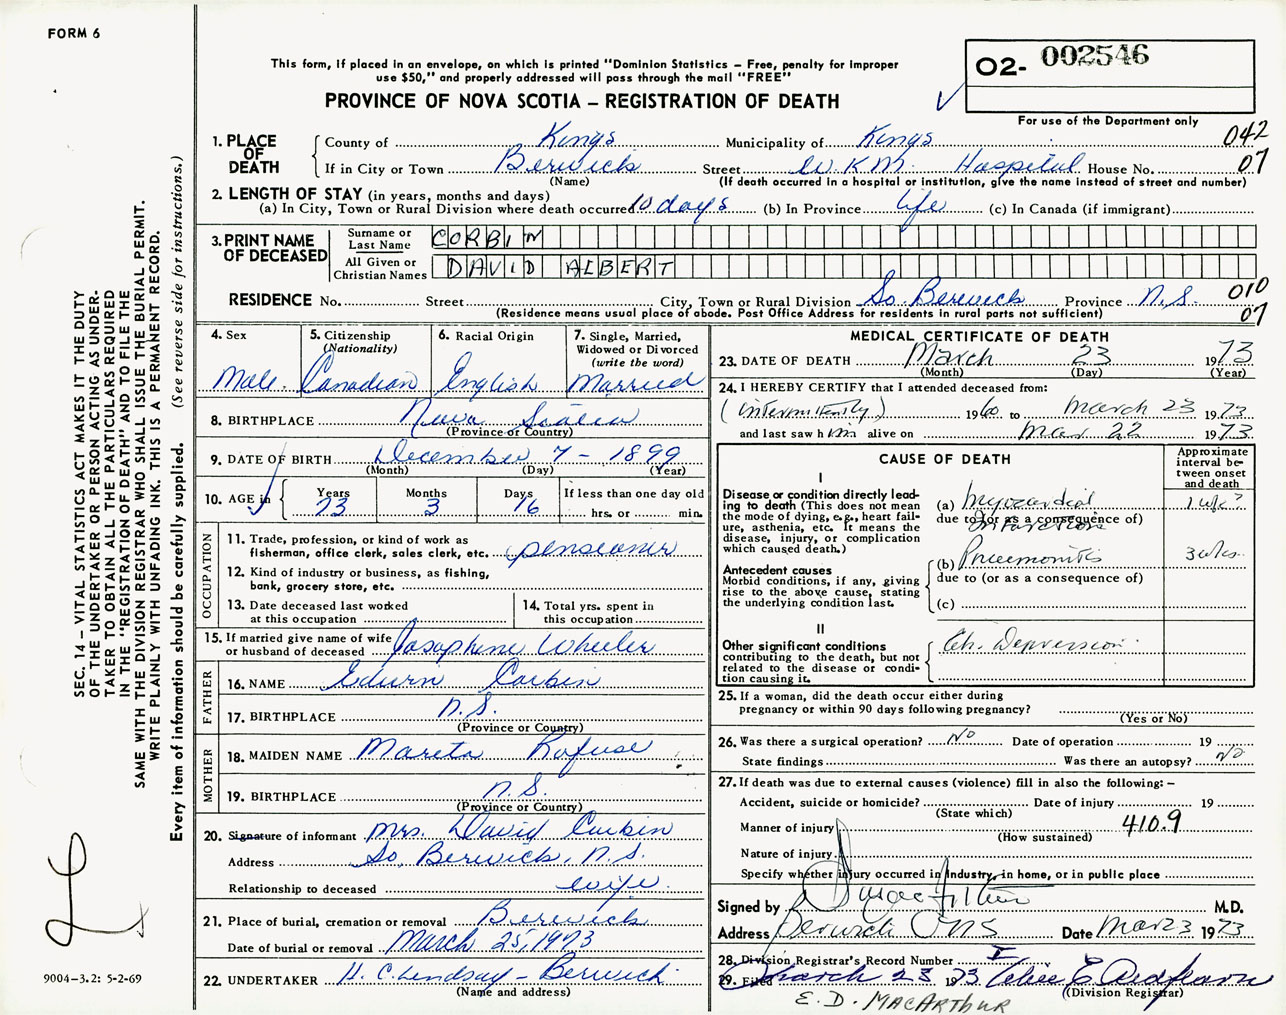 FORM 6
This form, if placed in an envelope, on which is printed "Dominion Statistics – Free, penalty for improper
use $50," and properly addressed will pass through the mail "FREE"
PROVINCE OF NOVA SCOTIA – REGISTRATION OF DEATH
02- 002546
For use of the Department only
1. PLACE OF DEATH County of Kings Municipality of Kings 042
If in City or Town Berwick Street W.K.M. Hospital House No. 07
(Name) (If death occurred in a hospital or institution, give the name instead of street and number)
2. LENGTH OF STAY (in years, months and days)
(a) In City, Town or Rural Division where death occurred 10 days (b) In Province life (c) In Canada (if immigrant)
3. PRINT NAME OF DECEASED
Surname or Last Name CORBIN
All Given or Christian Names DAVID ALBERT
RESIDENCE No. Street City, Town or Rural Division So. Berwick Province N.S. 010
(Residence means usual place of abode. Post Office Address for residents in rural parts not sufficient) 07
4. Sex Male.
5. Citizenship (Nationality) Canadian
6. Racial Origin English
7. Single, Married, Widowed or Divorced (write the word) Married
8. BIRTHPLACE Nova Scotia
(Province or Country)
9. DATE OF BIRTH December 7 – 1899
(Month) (Day) (Year)
10. AGE in Years 73 Months 3 Days 16 If less than one day old
hrs. or min.
OCCUPATION
11. Trade, profession, or kind of work as
fisherman, office clerk, sales clerk, etc. pensioner
12. Kind of industry or business, as fishing,
bank, grocery store, etc.
13. Date deceased last worked
at this occupation
14. Total yrs. spent in
this occupation
15. If married give name of wife
or husband of deceased Josephine Wheeler
FATHER
16. NAME Edwin Corbin
17. BIRTHPLACE N.S.
(Province or Country)
MOTHER
18. MAIDEN NAME Mareta Rafuse
19. BIRTHPLACE N.S.
(Province or Country)
20. Signature of informant Mrs. David Corbin
Address So. Berwick, N.S.
Relationship to deceased wife.
21. Place of burial, cremation or removal Berwick
Date of burial or removal March 25, 1973
22. UNDERTAKER H. C. Lindsay – Berwick
(Name and address)
MEDICAL CERTIFICATE OF DEATH
23. DATE OF DEATH March 23 1973
(Month) (Day) (Year)
24. I HEREBY CERTIFY that I attended deceased from:
(intermittently) 1960 to March 23 1973
and last saw him alive on Mar 22 1973
CAUSE OF DEATH
Approximate interval between onset and death
I
Disease or condition directly lead-
ing to death (This does not mean
the mode of dying, e.g., heart fail-
ure, asthenia, etc. It means the
disease, injury, or complication
which caused death.)
(a) Myocardial Infarction 1 wk?
due to (or as a consequence of)
Antecedent causes
Morbid conditions, if any, giving
rise to the above cause, stating
the underlying condition last.
(b) Pneumonitis 3 wks.
due to (or as a consequence of)
(c)
II
Other significant conditions
contributing to the death, but not
related to the disease or condi-
tion causing it.
Ch. Depression
25. If a woman, did the death occur either during
pregnancy or within 90 days following pregnancy?
(Yes or No)
26. Was there a surgical operation? No Date of operation 19
State findings Was there an autopsy? No
27. If death was due to external causes (violence) fill in also the following: –
Accident, suicide or homicide? Date of injury 19
(State which)
Manner of injury 410.9
(How sustained)
Nature of injury
Specify whether injury occurred in industry, in home, or in public place
Signed by M.D.
Address Berwick NS Date Mar 23 1973
28. Division Registrar's Record Number
29. Filed March 23 1973
(Division Registrar)
E. D. MACARTHUR
SEC. 14 – VITAL STATISTICS ACT MAKES IT THE DUTY
OF THE UNDERTAKER OR PERSON ACTING AS UNDER-
TAKER TO OBTAIN ALL THE PARTICULARS REQUIRED
IN THE "REGISTRATION OF DEATH" AND TO FILE THE
SAME WITH THE DIVISION REGISTRAR WHO SHALL ISSUE THE BURIAL PERMIT.
WRITE PLAINLY WITH UNFADING INK. THIS IS A PERMANENT RECORD.
Every item of information should be carefully supplied. (See reverse side for instructions.)
9004–3.2: 5-2-69